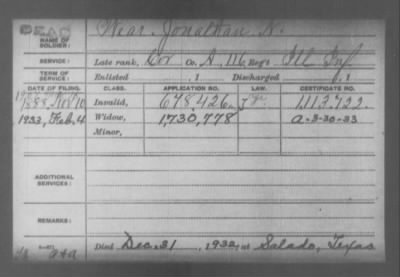 DEAD
NAME OF SOLDIER: Wear, Jonathan N.
SERVICE: Late rank, Cor Co. A, 116 Reg't Ill Inf
TERM OF SERVICE: Enlisted , 1 Discharged , 1
DATE OF FILING. CLASS. APPLICATION NO. LAW. CERTIFICATE NO.
1888, Nov 10 Invalid, 678,426. 1,113,722.
1933, Feb. 4 Widow, 1,730,778 A-3-30-33
Minor,
ADDITIONAL SERVICES:
REMARKS:
Died Dec. 31, 1932, at Salado, Texas